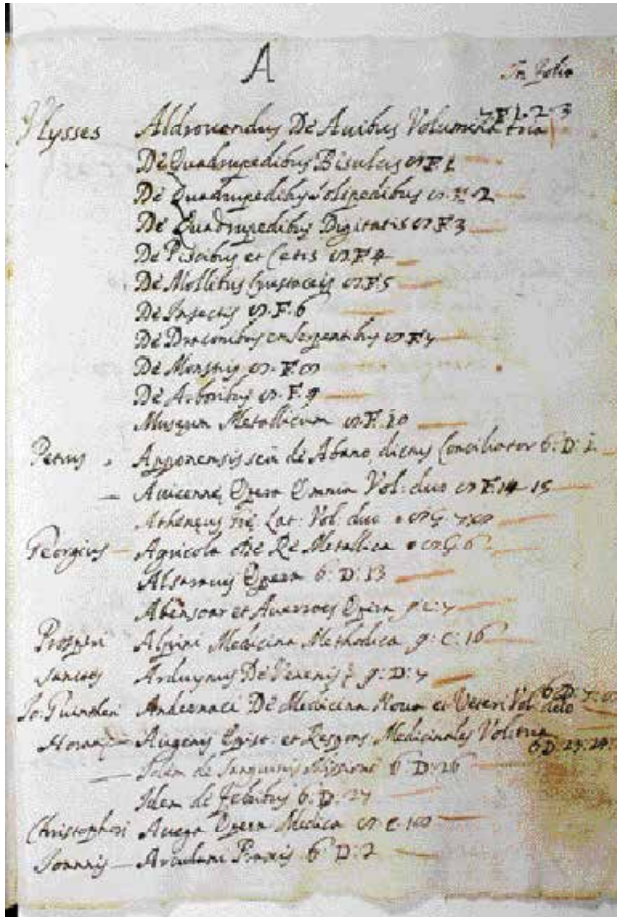 A
In Folio
Ulysses Aldrovandus De Avibus Volumina tria F. 1. 2. 3
De Quadrupedibus Bisulcis F. 1
De Quadrupedibus Solipedibus F. 2
De Quadrupedibus Digitatis F. 3
De Piscibus et Cetis F. 4
De Mollibus Crustaceis F. 5
De Insectis F. 6
De Draconibus et Serpentibus F.
De Monstris F.
De Arboribus F. 9
Musæum Metallicum F. 10
Petrus Apponensis seu de Abano dictus Conciliator 6: D: 1
Avicennę Opera Omnia Vol: duo F. 14 15
Athenęus Lat: Vol: duo G.
Georgius Agricola De Re Metallica G. 6
Opera 6: D: 13
Abensoar et Averroes Opera
Prosperi Alpini Medicina Methodica 9: C: 16
Santes Arduynus De Venenis 9: D:
Jo: Guintheri Andernaci De Medicina Nova et Veteri Vol: duo 6: D:
Augenii Epist: et Respons Medicinales Vol: 6 D: 23: 24:
Idem de Sanguinis Missione 6: D: 26
Idem de Febribus 6: D: 27
Christophori Avega Opera Medica
Joannis Arculani Praxis 6: D: 2